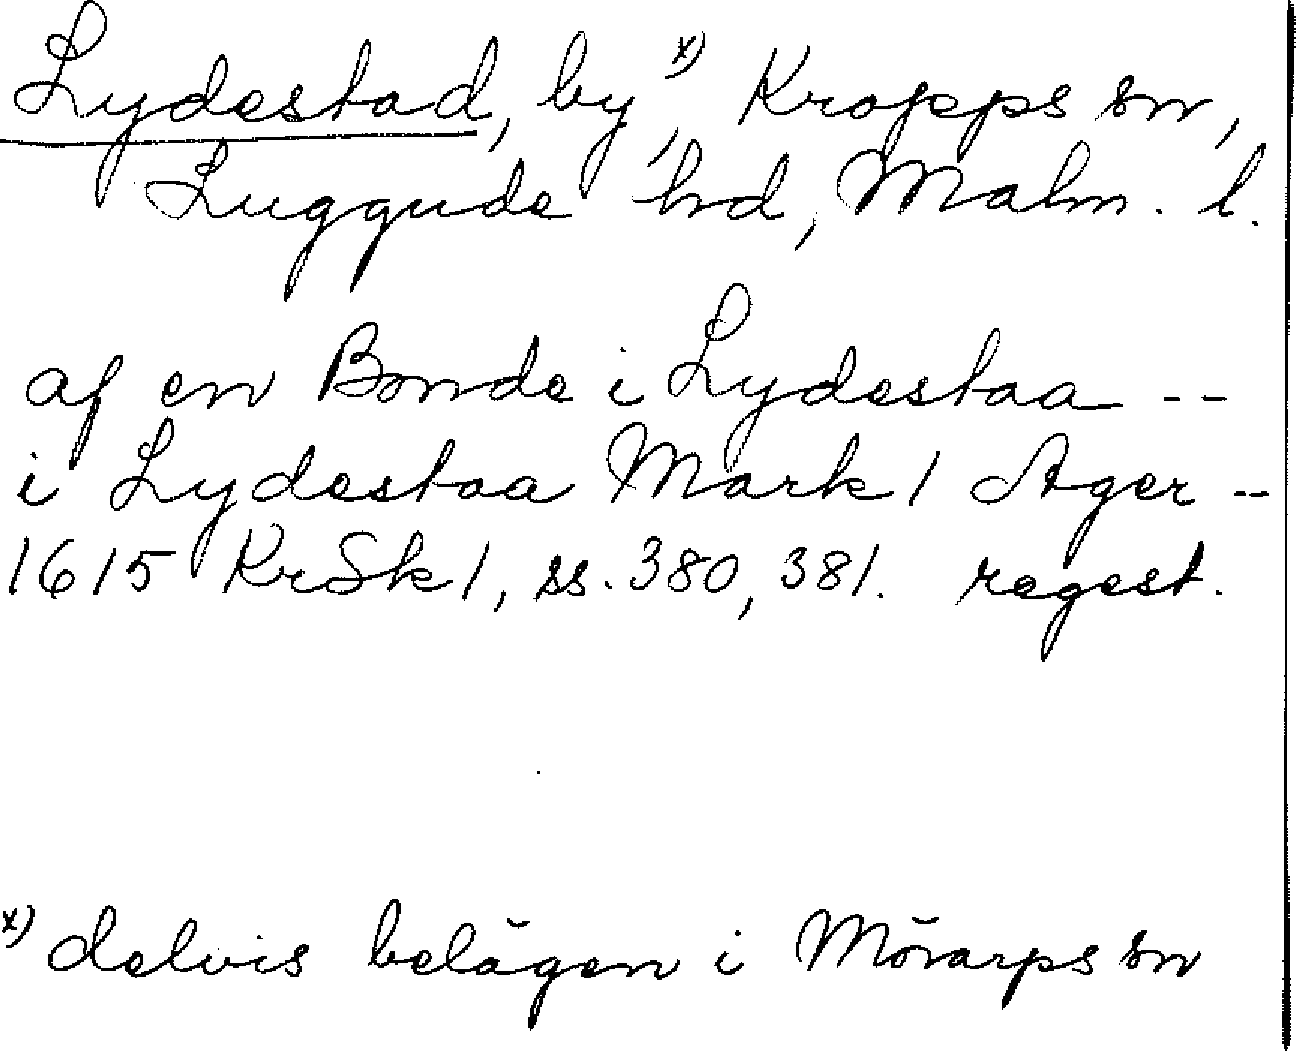 Lydestad, by x), Kropps sn,
Luggude hd, Malm. l.
af en Bonde i Lydestaa --
i Lydestaa Mark 1 Ager --
1615 KrSk 1, ss. 380, 381. regest.
x) delvis belägen i Mörarps sn